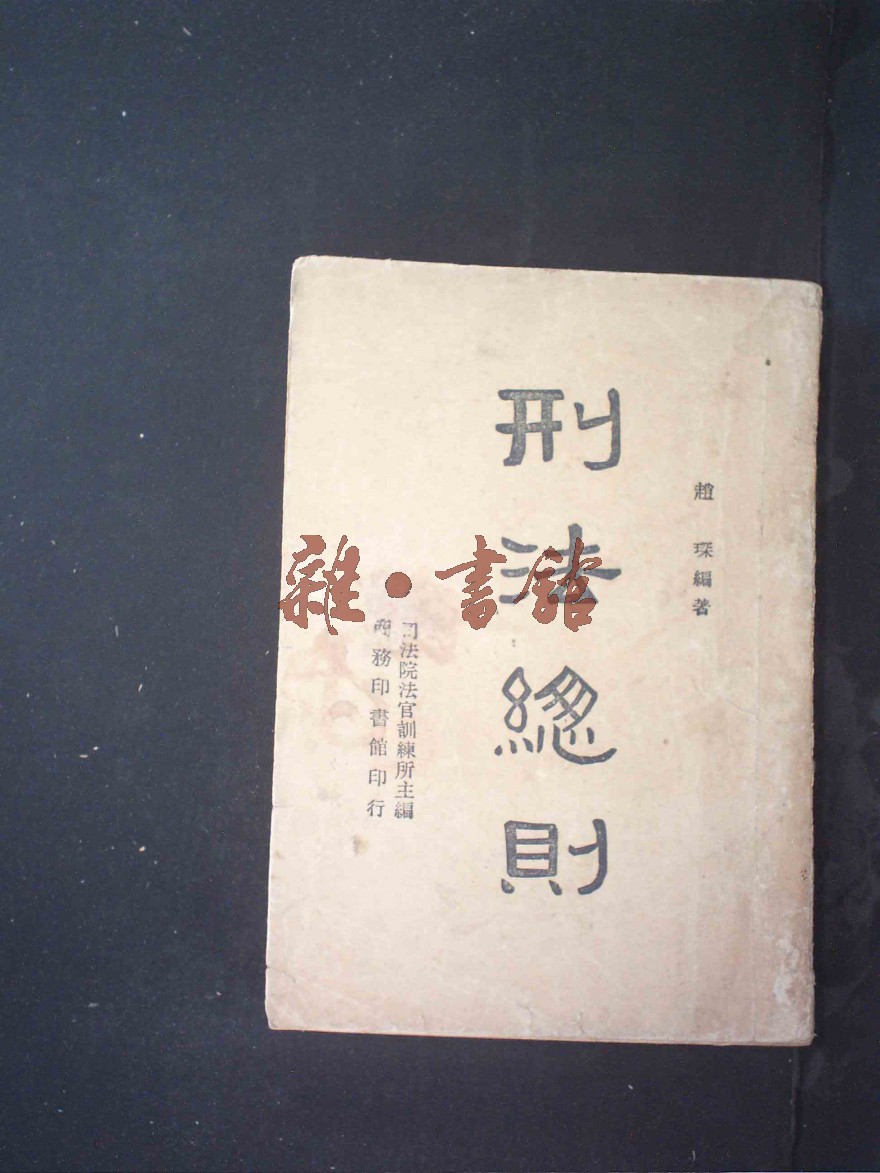 趙琛編著
刑法總則
司法院法官訓練所主編
商務印書館印行
雜·書館